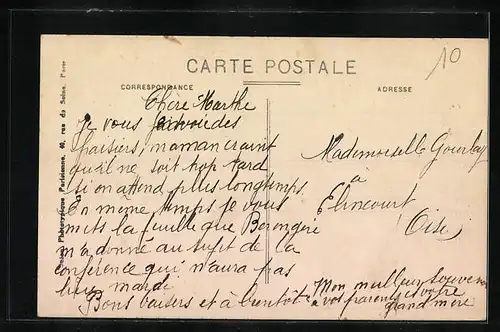 10
CARTE POSTALE
CORRESPONDANCE
ADRESSE
Chère Marthe
Je vous envoie des
fraisiers, maman craint
qu'il ne soit trop tard
si on attend plus longtemps.
En même temps je vous
mets la feuille que Berengère
m'a donné au sujet de la
conférence qui n'aura pas
lieu mardi
Bons baisers et à bientôt
Mon meilleur souvenir
à vos parents et votre
grand mère
Mademoiselle Gourlay
à
Elincourt
Oise
Phototypique Parisienne, 60, rue de Seine, Paris